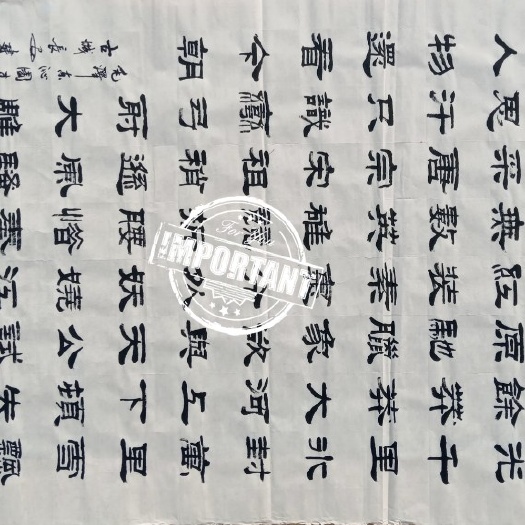 光千里冰封萬里雪飄
餘莽莽大河上下頓失
原馳臘象欲與天公試
紅裝素裹妖嬈江
無數英雄腰惜秦
采唐宗宋祖稍遜風騷
思汗只識彎弓射大雕
人物還看今朝
毛澤東沁園春
古城
For You
IMPORTANT